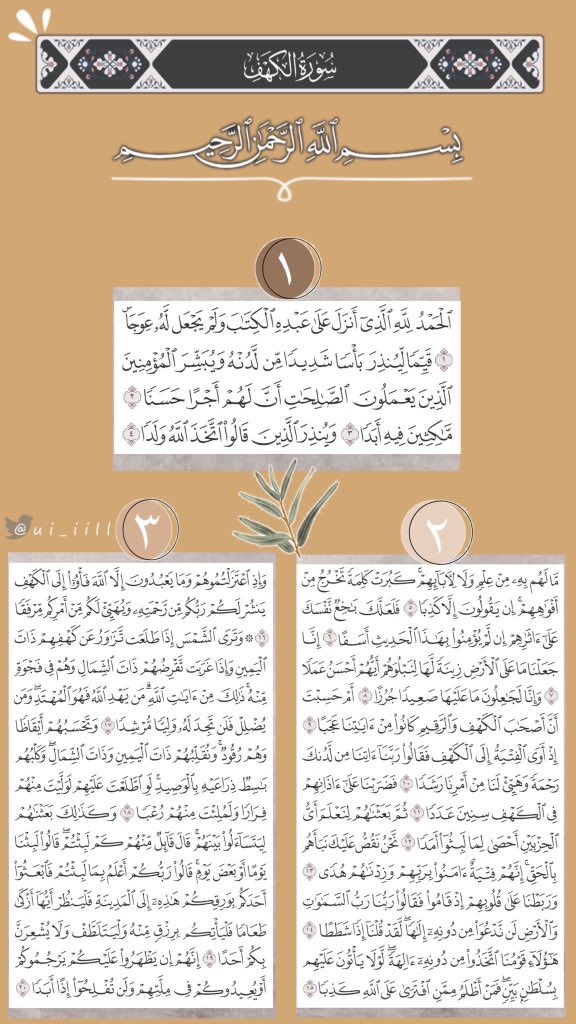 سُورَةُ الكَهْفِ
بِسْمِ ٱللَّهِ ٱلرَّحْمَٰنِ ٱلرَّحِيمِ
١
ٱلْحَمْدُ لِلَّهِ ٱلَّذِىٓ أَنزَلَ عَلَىٰ عَبْدِهِ ٱلْكِتَٰبَ وَلَمْ يَجْعَل لَّهُۥ عِوَجَاۜ
١ قَيِّمًا لِّيُنذِرَ بَأْسًا شَدِيدًا مِّن لَّدُنْهُ وَيُبَشِّرَ ٱلْمُؤْمِنِينَ
ٱلَّذِينَ يَعْمَلُونَ ٱلصَّٰلِحَٰتِ أَنَّ لَهُمْ أَجْرًا حَسَنًا ٢
مَّٰكِثِينَ فِيهِ أَبَدًا ٣ وَيُنذِرَ ٱلَّذِينَ قَالُوا۟ ٱتَّخَذَ ٱللَّهُ وَلَدًا ٤
٢
مَّا لَهُم بِهِۦ مِنْ عِلْمٍ وَلَا لِـَٔابَآئِهِمْ ۚ كَبُرَتْ كَلِمَةً تَخْرُجُ مِنْ
أَفْوَٰهِهِمْ ۚ إِن يَقُولُونَ إِلَّا كَذِبًا ٥ فَلَعَلَّكَ بَٰخِعٌ نَّفْسَكَ
عَلَىٰٓ ءَاثَٰرِهِمْ إِن لَّمْ يُؤْمِنُوا۟ بِهَٰذَا ٱلْحَدِيثِ أَسَفًا ٦ إِنَّا
جَعَلْنَا مَا عَلَى ٱلْأَرْضِ زِينَةً لَّهَا لِنَبْلُوَهُمْ أَيُّهُمْ أَحْسَنُ عَمَلًا
٧ وَإِنَّا لَجَٰعِلُونَ مَا عَلَيْهَا صَعِيدًا جُرُزًا ٨ أَمْ حَسِبْتَ
أَنَّ أَصْحَٰبَ ٱلْكَهْفِ وَٱلرَّقِيمِ كَانُوا۟ مِنْ ءَايَٰتِنَا عَجَبًا ٩
إِذْ أَوَى ٱلْفِتْيَةُ إِلَى ٱلْكَهْفِ فَقَالُوا۟ رَبَّنَآ ءَاتِنَا مِن لَّدُنكَ
رَحْمَةً وَهَيِّئْ لَنَا مِنْ أَمْرِنَا رَشَدًا ١٠ فَضَرَبْنَا عَلَىٰٓ ءَاذَانِهِمْ
فِى ٱلْكَهْفِ سِنِينَ عَدَدًا ١١ ثُمَّ بَعَثْنَٰهُمْ لِنَعْلَمَ أَىُّ
ٱلْحِزْبَيْنِ أَحْصَىٰ لِمَا لَبِثُوٓا۟ أَمَدًا ١٢ نَّحْنُ نَقُصُّ عَلَيْكَ نَبَأَهُم
بِٱلْحَقِّ ۚ إِنَّهُمْ فِتْيَةٌ ءَامَنُوا۟ بِرَبِّهِمْ وَزِدْنَٰهُمْ هُدًى ١٣
وَرَبَطْنَا عَلَىٰ قُلُوبِهِمْ إِذْ قَامُوا۟ فَقَالُوا۟ رَبُّنَا رَبُّ ٱلسَّمَٰوَٰتِ
وَٱلْأَرْضِ لَن نَّدْعُوَا۟ مِن دُونِهِۦٓ إِلَٰهًا ۖ لَّقَدْ قُلْنَآ إِذًا شَطَطًا ١٤
هَٰٓؤُلَآءِ قَوْمُنَا ٱتَّخَذُوا۟ مِن دُونِهِۦٓ ءَالِهَةً ۖ لَّوْلَا يَأْتُونَ عَلَيْهِم
بِسُلْطَٰنٍۭ بَيِّنٍ ۖ فَمَنْ أَظْلَمُ مِمَّنِ ٱفْتَرَىٰ عَلَى ٱللَّهِ كَذِبًا ١٥
@ui_iill
٣
وَإِذِ ٱعْتَزَلْتُمُوهُمْ وَمَا يَعْبُدُونَ إِلَّا ٱللَّهَ فَأْوُۥٓا۟ إِلَى ٱلْكَهْفِ
يَنشُرْ لَكُمْ رَبُّكُم مِّن رَّحْمَتِهِۦ وَيُهَيِّئْ لَكُم مِّنْ أَمْرِكُم مِّرْفَقًا
١٦ ۞ وَتَرَى ٱلشَّمْسَ إِذَا طَلَعَت تَّزَٰوَرُ عَن كَهْفِهِمْ ذَاتَ
ٱلْيَمِينِ وَإِذَا غَرَبَت تَّقْرِضُهُمْ ذَاتَ ٱلشِّمَالِ وَهُمْ فِى فَجْوَةٍ
مِّنْهُ ۚ ذَٰلِكَ مِنْ ءَايَٰتِ ٱللَّهِ ۗ مَن يَهْدِ ٱللَّهُ فَهُوَ ٱلْمُهْتَدِ ۖ وَمَن
يُضْلِلْ فَلَن تَجِدَ لَهُۥ وَلِيًّا مُّرْشِدًا ١٧ وَتَحْسَبُهُمْ أَيْقَاظًا
وَهُمْ رُقُودٌ ۚ وَنُقَلِّبُهُمْ ذَاتَ ٱلْيَمِينِ وَذَاتَ ٱلشِّمَالِ ۖ وَكَلْبُهُم
بَٰسِطٌ ذِرَاعَيْهِ بِٱلْوَصِيدِ ۚ لَوِ ٱطَّلَعْتَ عَلَيْهِمْ لَوَلَّيْتَ مِنْهُمْ
فِرَارًا وَلَمُلِئْتَ مِنْهُمْ رُعْبًا ١٨ وَكَذَٰلِكَ بَعَثْنَٰهُمْ
لِيَتَسَآءَلُوا۟ بَيْنَهُمْ ۚ قَالَ قَآئِلٌ مِّنْهُمْ كَمْ لَبِثْتُمْ ۖ قَالُوا۟ لَبِثْنَا
يَوْمًا أَوْ بَعْضَ يَوْمٍ ۚ قَالُوا۟ رَبُّكُمْ أَعْلَمُ بِمَا لَبِثْتُمْ فَٱبْعَثُوٓا۟
أَحَدَكُم بِوَرِقِكُمْ هَٰذِهِۦٓ إِلَى ٱلْمَدِينَةِ فَلْيَنظُرْ أَيُّهَآ أَزْكَىٰ
طَعَامًا فَلْيَأْتِكُم بِرِزْقٍ مِّنْهُ وَلْيَتَلَطَّفْ وَلَا يُشْعِرَنَّ
بِكُمْ أَحَدًا ١٩ إِنَّهُمْ إِن يَظْهَرُوا۟ عَلَيْكُمْ يَرْجُمُوكُمْ
أَوْ يُعِيدُوكُمْ فِى مِلَّتِهِمْ وَلَن تُفْلِحُوٓا۟ إِذًا أَبَدًا ٢٠